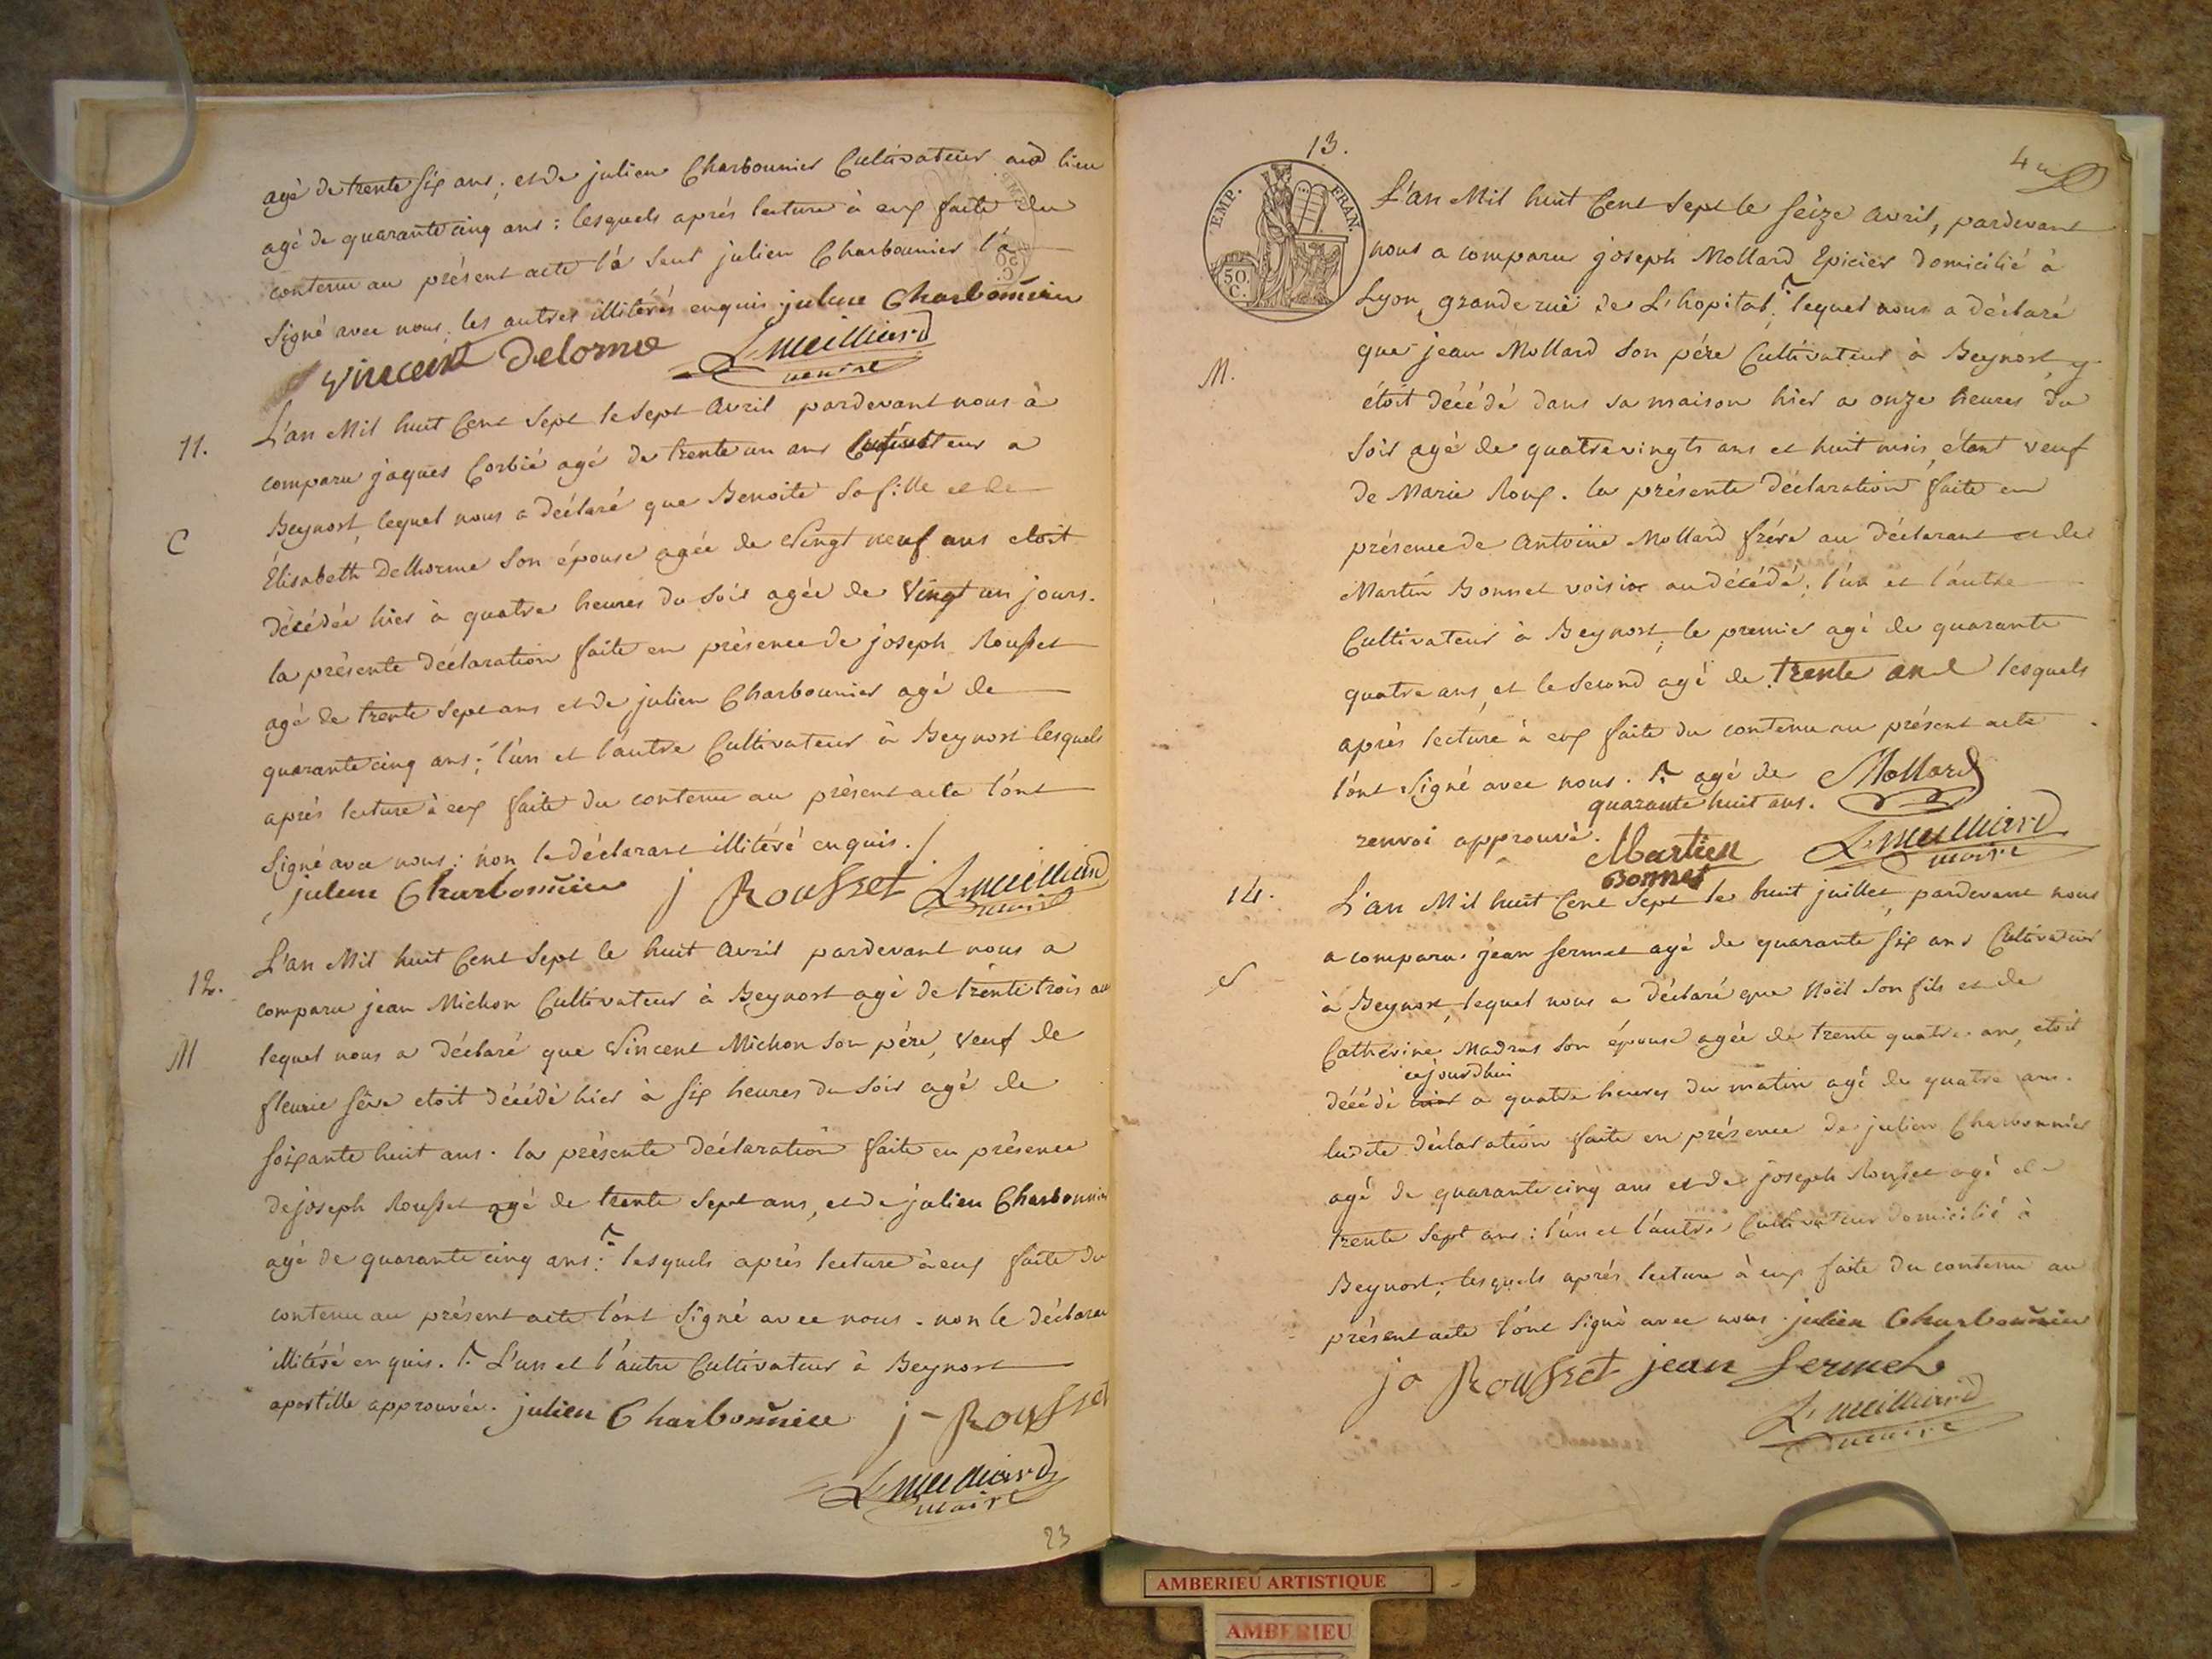 agé de trente six ans; et de julien Charbonnier Cultivateur aud lieu
agé de quarante cinq ans: lesquels aprés lecture à eux faite du
contenu au présent acte l'a seul julien Charbonnier l'a
signé avec nous. les autres illitérés enquis. juliene Charbonnier
vincent Delorme L. meilliard
maire
11.
L'an Mil huit Cent Sept le sept Avril pardevant nous à
comparu jaques Corbié agé de trente un ans Cultivateur a
Beynost, lequel nous a déclaré que Benoite sa fille et de
C
Élisabeth Delhorme son épouse agée de Vingt neuf ans etoit
décédée hier à quatre heures du Soir agée de Vingt un jours.
la présente déclaration faite en présence de joseph Rousset
agé de trente sept ans et de julien Charbonnier agé de
quarante cinq ans; l'un et l'autre Cultivateur à Beynost lesquels
aprés lecture à eux faite du contenu au présent acte l'ont
Signé avec nous: non le déclarant illitéré enquis./
juliene Charbonnier j Rousset L. meilliard
maire
12.
L'an Mil huit Cent Sept le huit Avril pardevant nous a
comparu jean Michon Cultivateur à Beynost agé de trente trois an
M
lequel nous a déclaré que Vincent Michon son pére, veuf de
fleurie sève etoit décédé hier à six heures du Soir agé de
soixante huit ans. la présente déclaration faite en présence
de joseph Rousset agé de trente sept ans, et de julien Charbonnier
agé de quarante cinq ans: lesquels aprés lecture à eux faite du
contenu au présent acte l'ont signé avec nous. non le déclaran
illitéré enquis. L'un et l'autre Cultivateur à Beynost
apostille approuvée. julien Charbonnier j Rousset
L. meilliard
maire
23
13.
4
EMP. FRAN.
50
C.
L'an Mil huit Cent Sept le Seize Avril, pardevant
nous a comparu joseph Mollard Epicier domicilié à
Lyon grande ruë de L'hopital; lequel nous a déclaré
M.
que jean Mollard son pére Cultivateur à Beynost, y
étoit décédé dans sa maison hier a onze heures du
Soir agé de quatrevingts ans et huit mois, étant veuf
de Marie Roux. la présente déclaration faite en
présence de Antoine Mollard frére au déclarant et de
Martin Bonnet voisin au décédé; l'un et l'autre
Cultivateur à Beynost; le premier agé de quarante
quatre ans, et le second agé de trente ans lesquels
aprés lecture à eux faite du contenu au présent acte
l'ont signé avec nous. agé de Mollard
quarante huit ans.
renvoi approuvé.
Martien L. meilliard
Bonnet maire
14.
L'an Mil huit Cent Sept le huit juillet, pardevant nous
a comparu jean sermet agé de quarante six ans Cultivateur
S
à Beynost, lequel nous a déclaré que Noël son fils et de
Catherine Madras son épouse agée de trente quatre ans, etoit
cejourdhui
décédé hier a quatre heures du matin agé de quatre ans.
ladite déclaration faite en présence de julien Charbonnier
agé de quarante cinq ans et de joseph Rousset agé de
trente sept ans: l'un et l'autre Cultivateur domicilié à
Beynost; lesquels aprés lecture à eux faite du contenu au
présent acte l'ont signé avec nous. julien Charbonnier
jo Rousset jean Sermet
L. meilliard
maire
AMBERIEU ARTISTIQUE
AMBERIEU